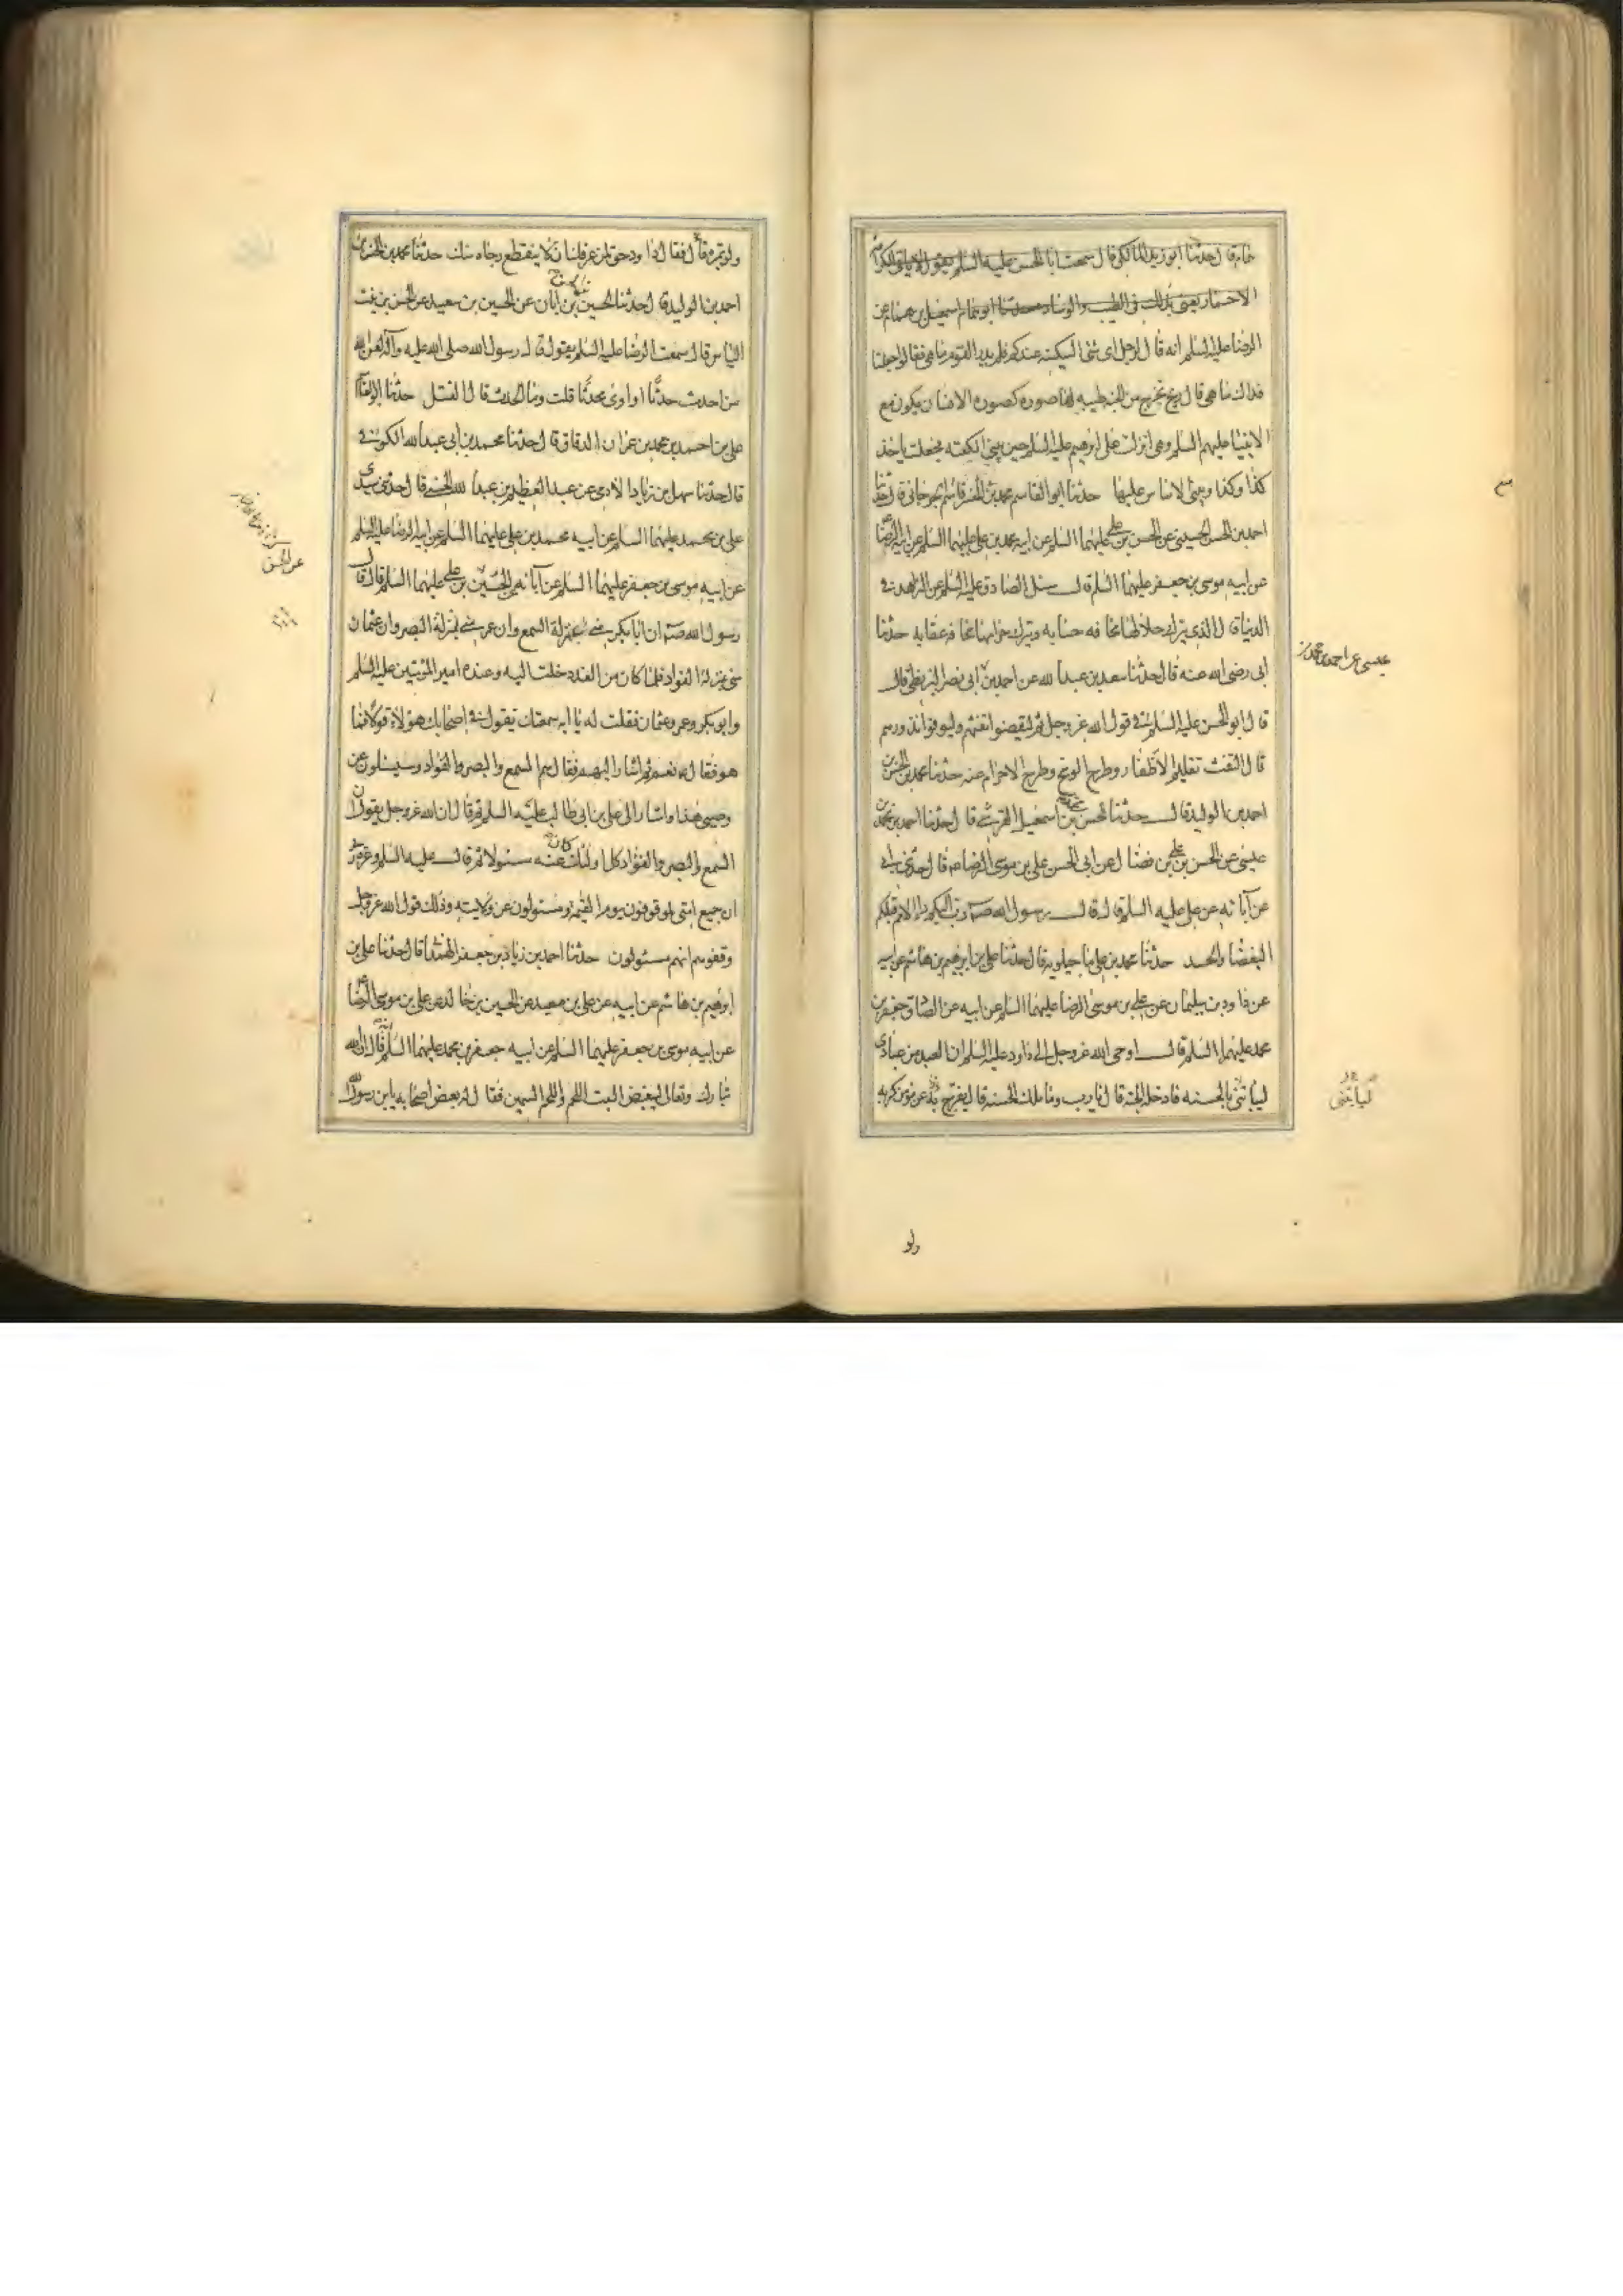 خام قال حدثنا ابو زيد المالكي قال سمعت ابا الحسن عليه السلم يقول لا يابى الكرامة
الا حمار يعنى بذلك فى الطيب والوساد حدثنا ابو همام اسمعيل بن همام عن
الرضا عليه السلم انه قال لرجل اى شئ السكينة عندكم فلم يدر القوم ما هى فقالوا جعلنا
فداك ما هى قال ريح تخرج من الجنة طيبه لها صوره كصورة الانسان يكون مع
الانبيا عليهم السلم وهى انزلت على ابرهيم عليه السلم حين بنى الكعبة فجعلت ياخذ
كذا وكذا ويبنى الاساس عليها حدثنا ابو القاسم محمد بن القاسم الجرجانى قال حدثنا
احمد بن الحسن الحسينى عن الحسن بن على عليهما السلم عن ابيه محمد بن على عليهما السلم عن ابيه الرضا
عن ابيه موسى بن جعفر عليهما السلم قال سئل الصادق عليه السلم عن الزاهد فى
الدنيا قال الذى يترك حلالها مخافه حسابه ويترك حرامها مخافه عقابه حدثنا
ابى رضى الله عنه قال حدثنا سعد بن عبد الله عن احمد بن ابى نصر البزنطى قال
قال ابو الحسن عليه السلم فى قول الله عز وجل ثم ليقضوا تفثهم وليوفوا نذورهم
قال التفث تقليم الاظفار وطرح الوسخ وطرح الاحرام عنه حدثنا محمد بن الحسن بن
احمد بن الوليد قال حدثنا الحسن بن اسمعيل القرشى قال حدثنا احمد بن محمد بن
عيسى عن الحسن بن على بن فضال عن ابى الحسن على بن موسى الرضا قال حدثنى ابى
عن آبائه عن على عليه السلم قال قال رسول الله صم دب اليكم داء الامم قبلكم
البغضا والحسد حدثنا محمد بن على ماجيلويه قال حدثنا على بن ابرهيم بن هاشم عن ابيه
عن داود بن سليمان عن على بن موسى الرضا عليهما السلم عن ابيه عن الصادق جعفر بن
محمد عليهما السلم قال اوحى الله عز وجل الى داود عليه السلم ان العبد من عبادى
لياتنى بالحسنه فادخله الجنة قال يا رب وما تلك الحسنة قال يفرج عن مؤمن كربه
عيسى عن احمد بن محمد بن
ليأتنى
ولو
ولو بتمره قال فقال داود حق لمن عرفك ان لا ينقطع رجاه منك حدثنا محمد بن الحسن بن
احمد بن الوليد قال حدثنا الحسين بن ابان عن الحسين بن سعيد عن الحسن بن بنت
الياس قال سمعت الرضا عليه السلم يقول قال رسول الله صلى الله عليه وآله لعن الله
من احدث حدثا او اوى محدثا قلت وما الحدث قال القتل حدثنا ابو القاسم
على بن احمد بن محمد بن عمران الدقاق قال حدثنا محمد بن ابى عبد الله الكوفى
قال حدثنا سهل بن زياد الادمى عن عبد العظيم بن عبد الله الحسنى قال حدثنى سيدى
على بن محمد عليهما السلم عن ابيه محمد بن على عليهما السلم عن ابيه الرضا عليه السلم
عن ابيه موسى بن جعفر عليهما السلم عن آبائه عن الحسين بن على عليهما السلم قال قال
رسول الله صم ان ابا بكر منى بمنزلة السمع وان عمر منى بمنزلة البصر وان عثمان
منى بمنزلة الفواد فلما كان من الغد دخلت اليه وعنده امير المؤمنين عليه السلم
وابو بكر وعمر وعثمان فقلت له يا ابه سمعتك تقول فى اصحابك هؤلاء قولا فما
هو فقال نعم ثم اشار اليهم فقال هم السمع والبصر والفواد وسيسئلون عن
وصيى هذا واشار الى على بن ابى طالب عليه السلم ثم قال ان الله عز وجل يقول ان
السمع والبصر والفواد كل اولئك كان عنه مسئولا ثم قال عليه السلم وعزة ربى
ان جميع امتى لموقوفون يوم القيمة ومسئولون عن ولايته وذلك قول الله عز وجل
وقفوهم انهم مسئولون حدثنا احمد بن زياد بن جعفر الهمدانى قال حدثنا على بن
ابرهيم بن هاشم عن ابيه عن على بن معبد عن الحسين بن خالد عن على بن موسى الرضا
عن ابيه موسى بن جعفر عليهما السلم عن ابيه جعفر بن محمد عليهما السلم قال ان الله
تبارك وتعالى ليبغض البيت اللحم واللحم السمين فقال له بعض اصحابه يا بن رسول الله